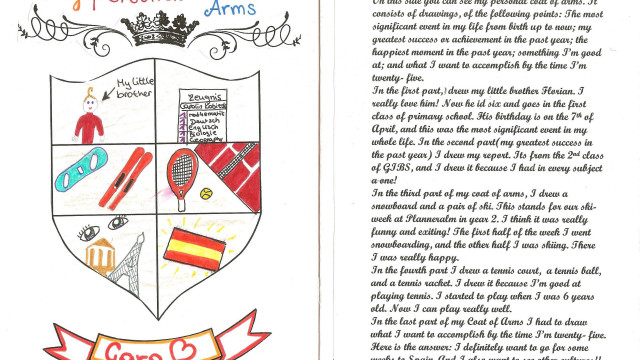 Arms
My little
brother
Zeugnis
mathematic
Deutsch
Englisch
Biologie
Geography
Caro
On this side you can see my personal coat of arms. It
consists of drawings, of the following points: The most
significant event in my life from birth up to now; my
greatest success or achievement in the past year; the
happiest moment in the past year; something I'm good
at; and what I want to accomplish by the time I'm
twenty- five.
In the first part, I drew my little brother Florian. I
really love him! Now he id six and goes in the first
class of primary school. His birthday is on the 7th of
April, and this was the most significant event in my
whole life. In the second part(my greatest success in
the past year) I drew my report. Its from the 2nd class
of GIBS, and I drew it because I had in every subject
a one!
In the third part of my coat of arms, I drew a
snowboard and a pair of ski. This stands for our ski-
week at Planneralm in year 2. I think it was really
funny and exiting! The first half of the week I went
snowboarding, and the other half I was skiing. There
I was really happy.
In the fourth part I drew a tennis court, a tennis ball,
and a tennis racket. I drew it because I'm good at
playing tennis. I started to play when I was 6 years
old. Now I can play really well.
In the last part of my Coat of Arms I had to draw
what I want to accomplish by the time I'm twenty- five.
Here is the answer: I definitely want to go for some
weeks to Spain. And I also want to see other cultures!!